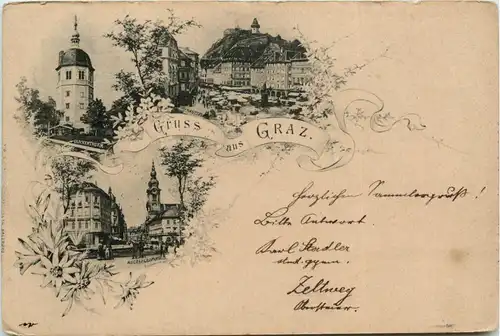 Gruss
aus
GRAZ.
herzlichen Sammlergruß!
Bitte Antwort.
Karl Stadler
stud. gym.
Zeltweg
Obersteier.